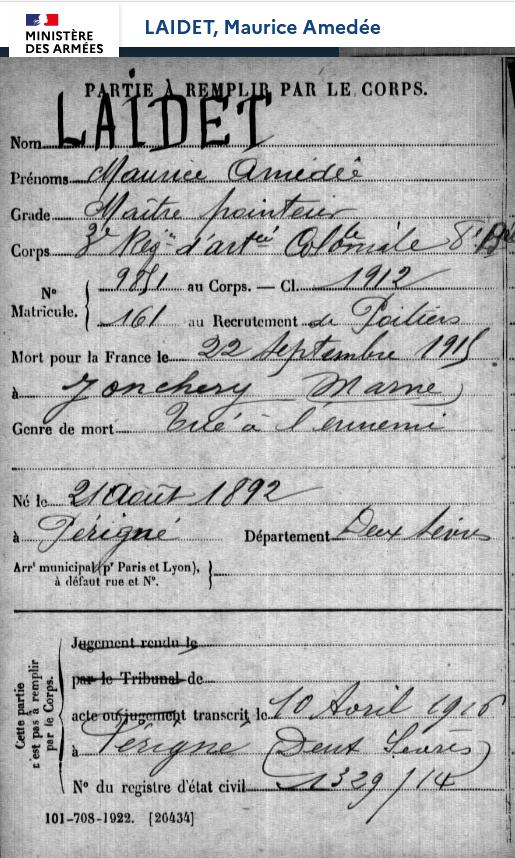 MINISTÈRE
DES ARMÉES
LAIDET, Maurice Amedée
PARTIE À REMPLIR PAR LE CORPS.
Nom LAIDET
Prénoms Maurice Amédée
Grade Maître pointeur
Corps 3e Rég d'artie Coloniale 8e Bie
No
Matricule.
9851 au Corps. — Cl. 1912
161 au Recrutement de Poitiers
Mort pour la France le 22 Septembre 1915
à Jonchery (Marne)
Genre de mort Tué à l'ennemi
Né le 21 Août 1892
à Périgné Département Deux Sèvres
Arrt municipal (pr Paris et Lyon),
à défaut rue et No.
Cette partie
n'est pas à remplir
par le Corps.
Jugement rendu le
par le Tribunal de
acte ou jugement transcrit le 10 Avril 1916
à Périgné (Deux Sèvres)
No du registre d'état civil 1329/14
101-708-1922. [26434]